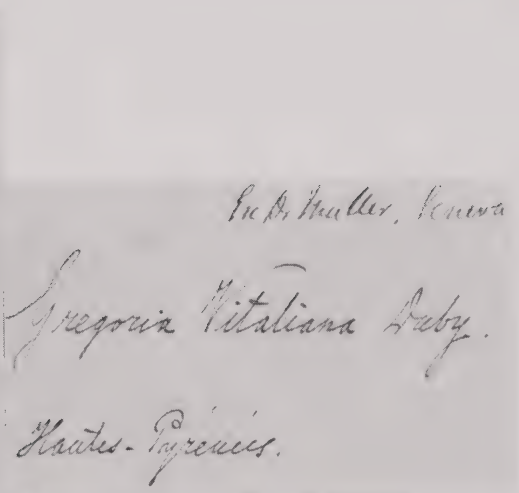 Ex Dr Muller, Geneva
Gregoria Vitaliana Duby.
Hautes-Pyrénées.